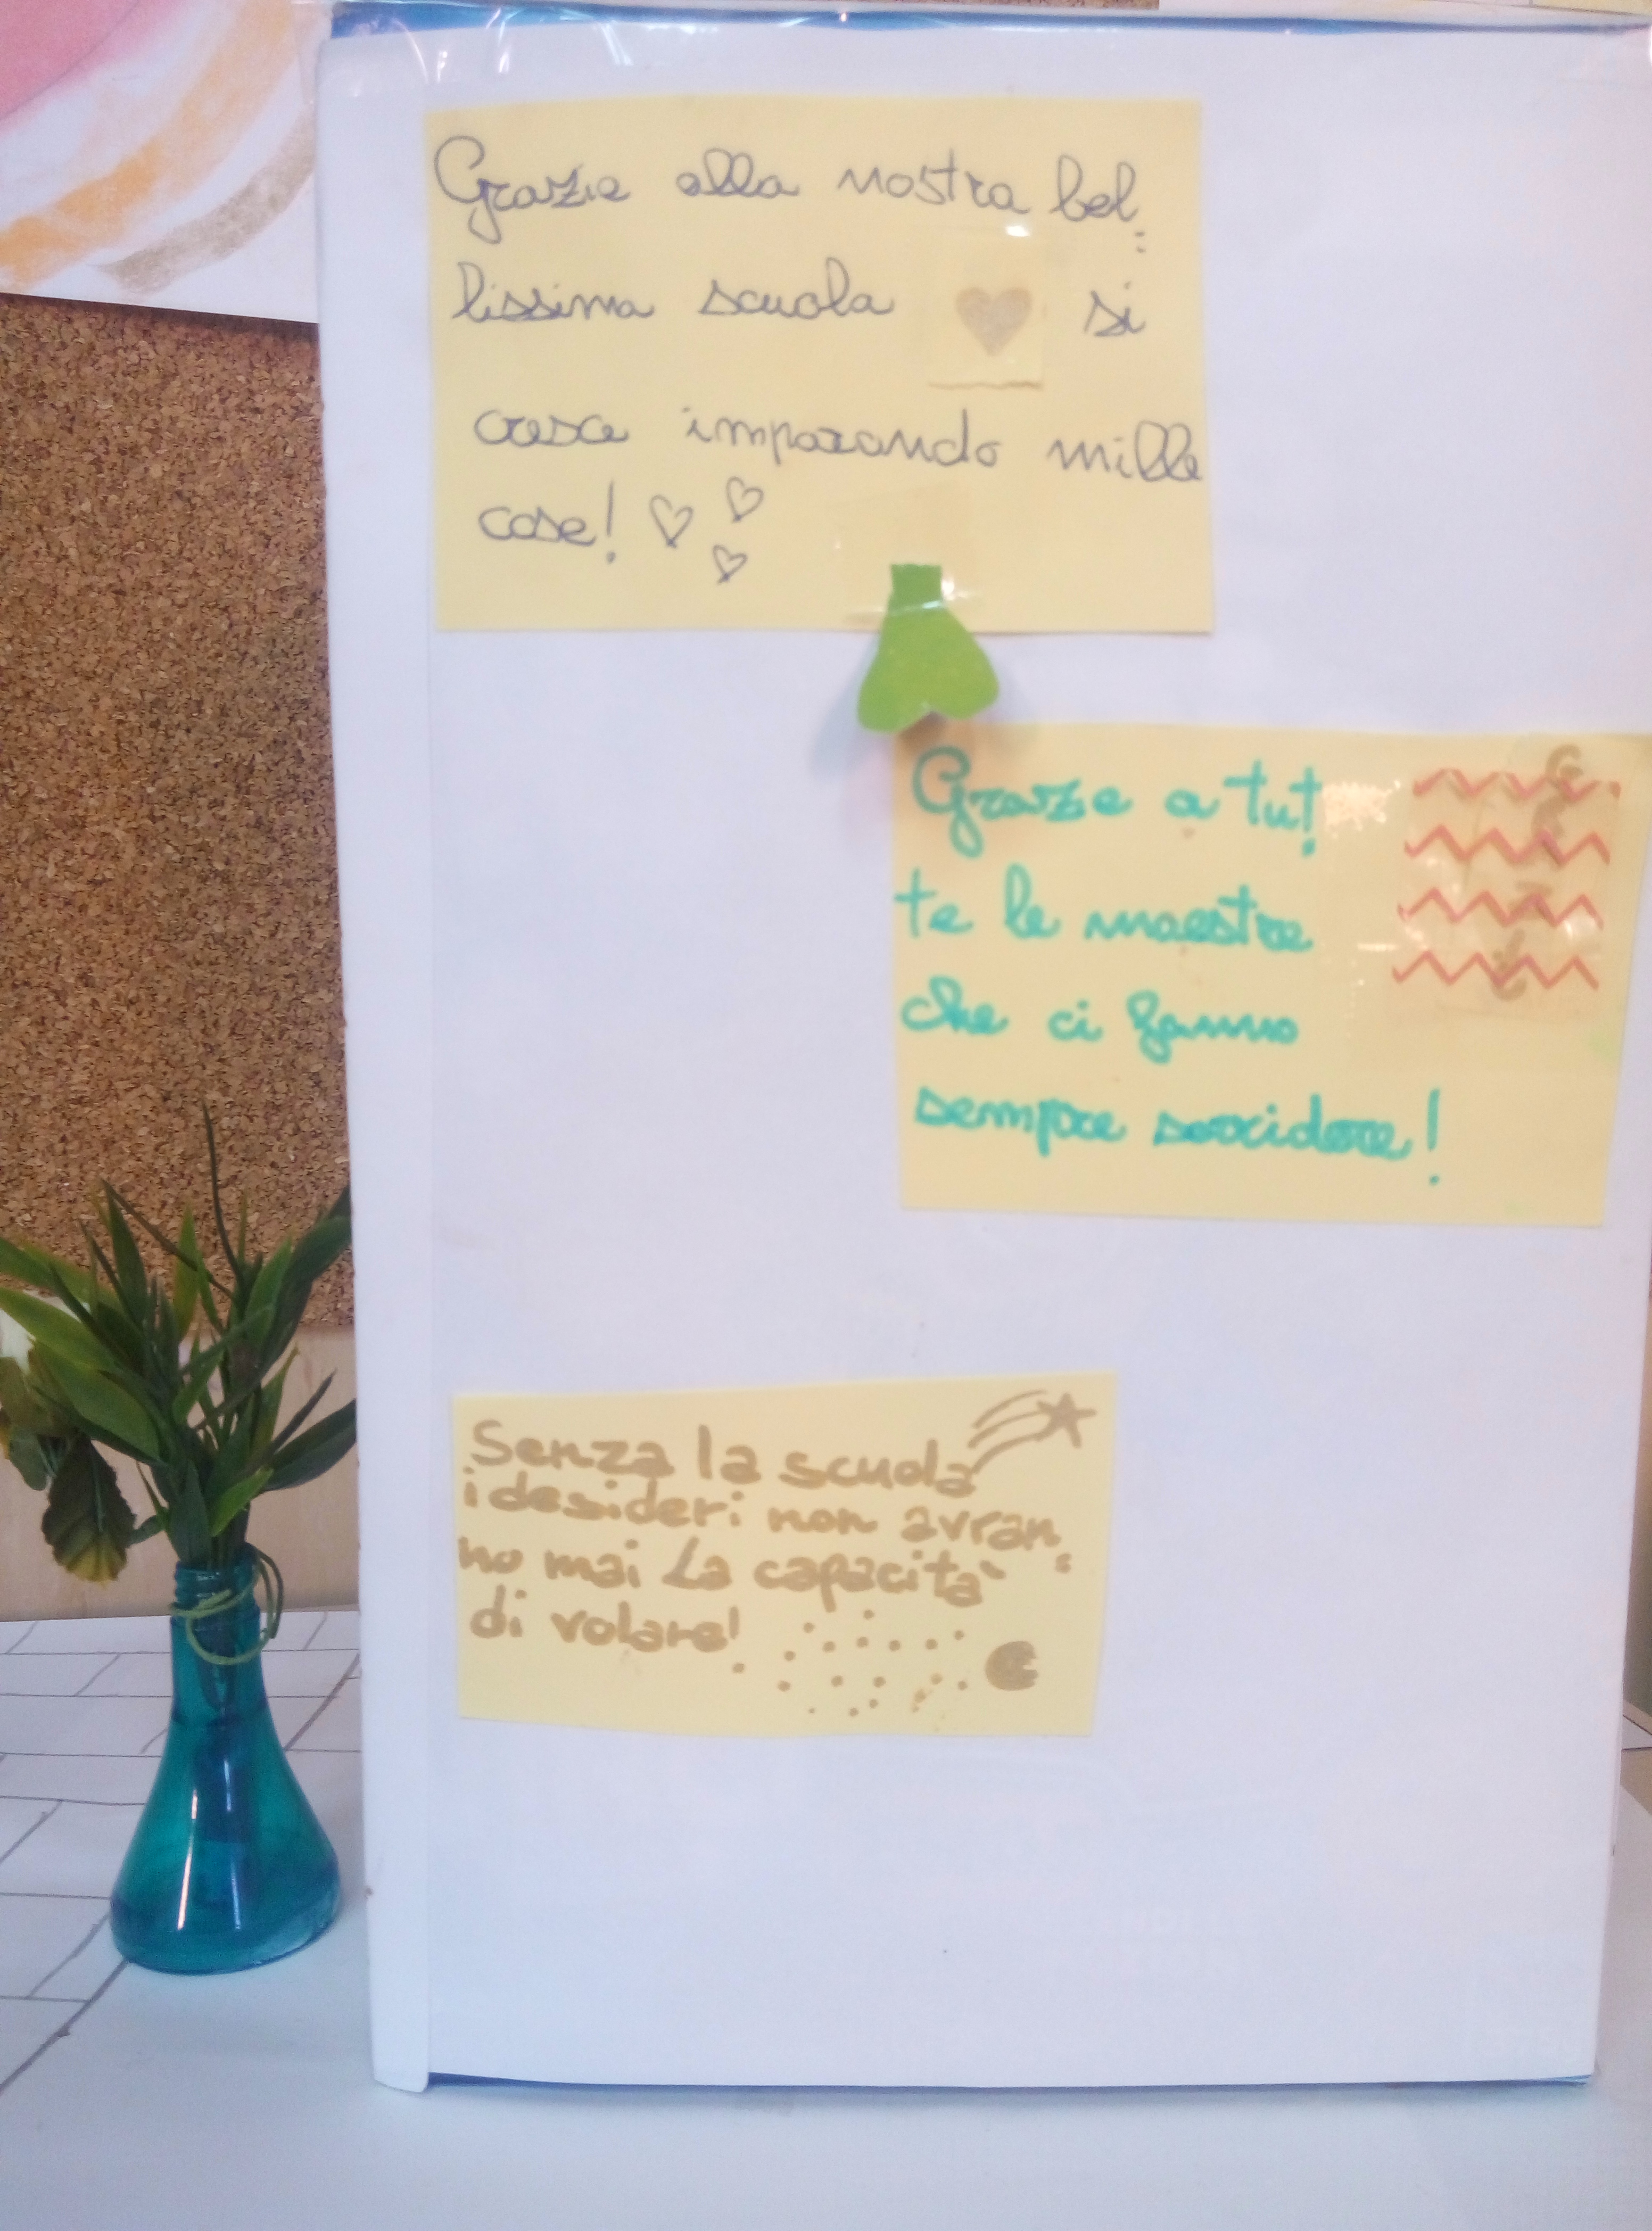 Grazie alla nostra bel
lissima scuola si
cresce imparando mille
cose!
Grazie a tut
te le maestre
che ci fanno
sempre sorridere!
Senza la scuola
i desideri non avran
no mai la capacità
di volare!